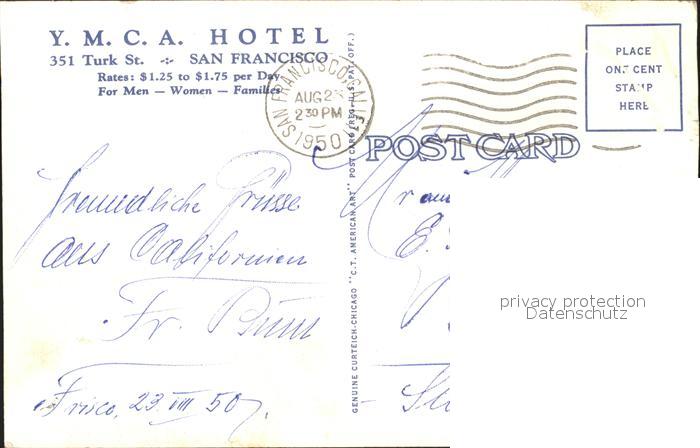 Y. M. C. A. HOTEL
351 Turk St. SAN FRANCISCO
Rates: $1.25 to $1.75 per Day
For Men — Women — Families
SAN FRANCISCO, CALIF.
AUG 23
2 30 PM
1950
PLACE
ONE CENT
STAMP
HERE
POST CARD
GENUINE CURTEICH-CHICAGO "C.T. AMERICAN ART" POST CARD (REG. U.S. PAT. OFF.)
Freundliche Grüsse
aus Californien
Fr.
Frisco, 23. VIII 50.
E.
privacy protection
Datenschutz